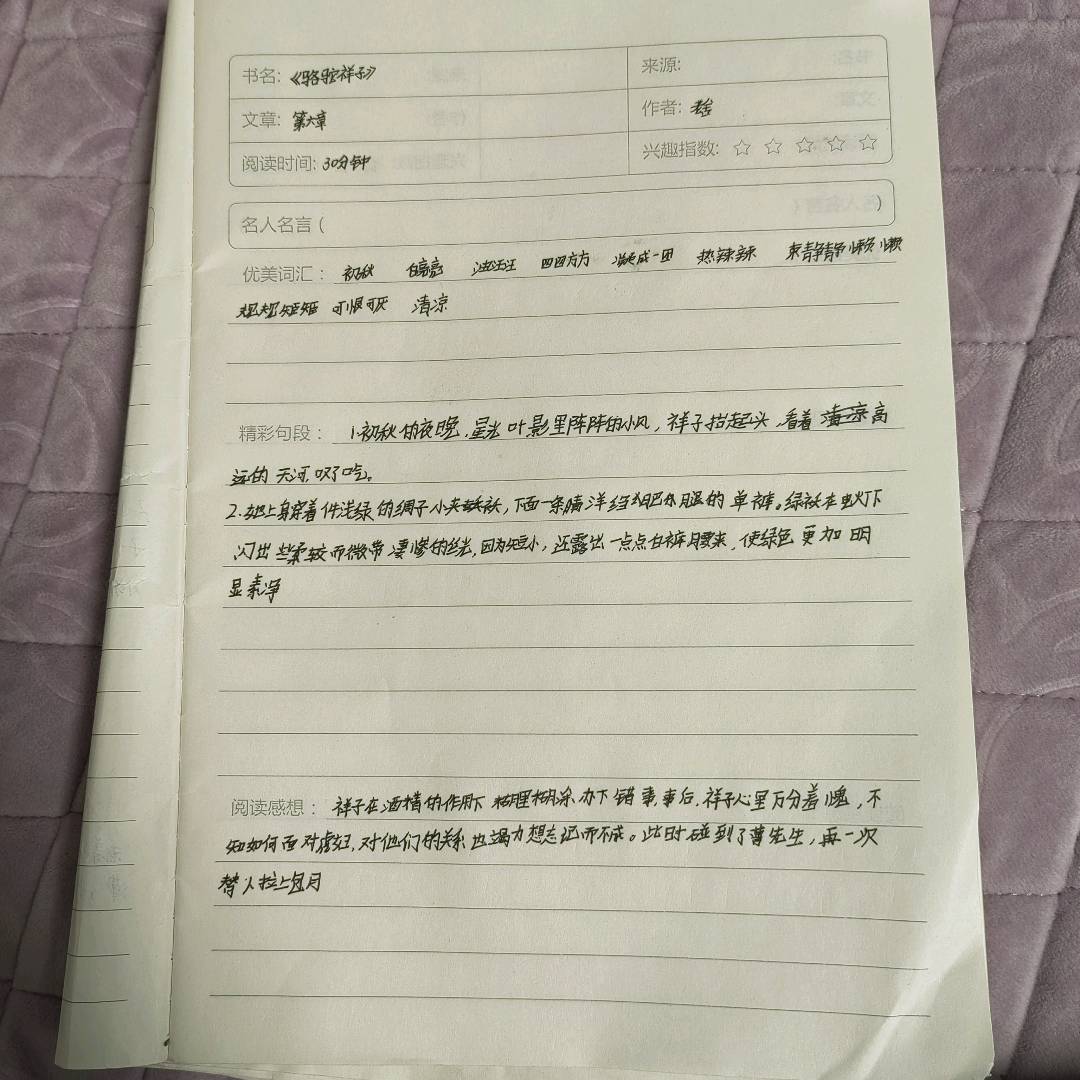 书名: 《骆驼祥子》 来源:
文章: 第六章 作者: 老舍
阅读时间: 30分钟 兴趣指数: ☆ ☆ ☆ ☆ ☆
名人名言 ( )
优美词汇： 初秋 白亮亮 泪汪汪 四四方方 凝成一团 热辣辣 静静 懒懒
规规矩矩 可恨可厌 清凉
精彩句段： 1.初秋的夜晚,星光叶影里阵阵的小风，祥子抬起头,看着清凉高
远的天河,叹了口气。
2.她上身穿着件浅绿的绸子小夹袄，下面一条 洋绉肥腿的单裤。绿袄在电灯下
闪出些柔软而微带凄惨的丝光,因为短小，还露出一点点白裤腰来，使绿色更加明
显素净
阅读感想： 祥子在酒精的作用下糊里糊涂办下错事,事后,祥子心里万分羞愧，不
知如何面对虎妞,对他们的关系也竭力想忘记而不成。此时碰到了曹先生，再一次
替人拉上包月